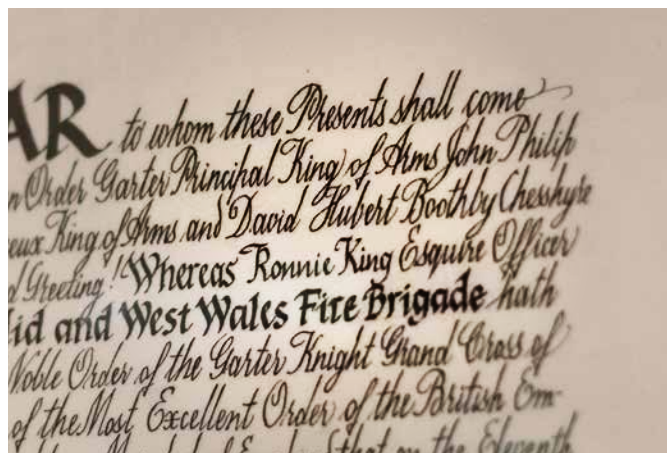 AR to whom these Presents shall come
n Order Garter Principal King of Arms John Philip
eux King of Arms and David Hubert Boothby Chesshyre
d Greeting! Whereas Ronnie King Esquire Officer
id and West Wales Fire Brigade hath
Noble Order of the Garter Knight Grand Cross of
of the Most Excellent Order of the British Em-
that on the Eleventh